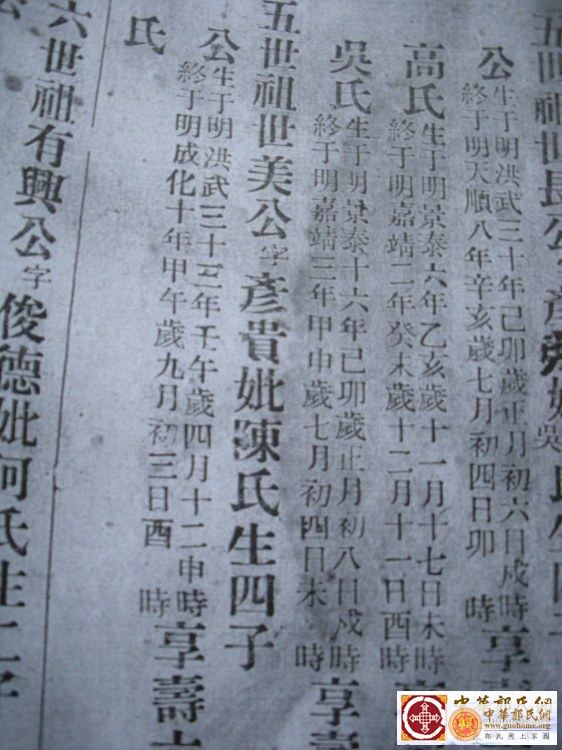 五世祖世長公字彥妣吳氏生四子
公生于明洪武三十年己卯歲正月初六日戍時
終于明天順八年辛亥歲七月初四日卯時享壽
高氏生于明景泰六年乙亥歲十一月十七日未時
終于明嘉靖二年癸未歲十二月十一日酉時
吳氏生于明景泰十六年己卯歲正月初八日戍時
終于明嘉靖三年甲申歲七月初四日未時享壽
五世祖世美公字彥貴妣陳氏生四子
公生于明洪武三十三年壬午歲四月十二申時
終于明成化十年甲午歲九月初三日酉時享壽
氏
六世祖有興公字俊德妣何氏生二子
公
中華郭氏網
中華郭氏網
www.guohome.org
郭氏網上家園